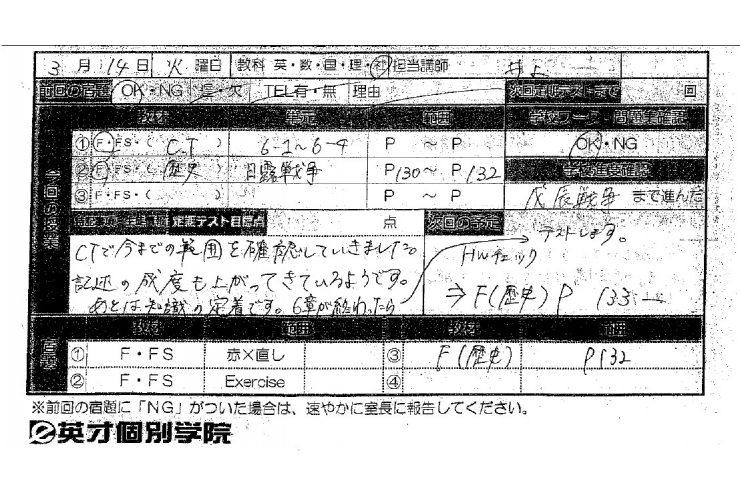 3月14日 火曜日 教科 英・数・国・理・社 担当講師 井上
前回の宿題 OK・NG 遅・欠 TEL有・無 理由 次回定期テストまで 回
教材 単元 範囲 学校ワーク・問題集確認
① F・FS・( C.T ) 6-1～6-4 P ～ P OK・NG
② F・FS・( 歴史 ) 日露戦争 P130～P132 学校進度確認
③ F・FS・( ) P ～ P 戊辰戦争 まで進んだ
今回の授業
定期テスト目標点 点 次回の予定
CTで今までの範囲を確認していきました。
記述の成度も上がってきているようです。
あとは知識の定着です。6章が終わったら
テストします。
HWチェック
⇒ F(歴史) P 133～
宿題 教材 範囲 教材 範囲
① F・FS 赤×直し ③ F(歴史) P132
② F・FS Exercise ④
※前回の宿題に「NG」がついた場合は、速やかに室長に報告してください。
英才個別学院